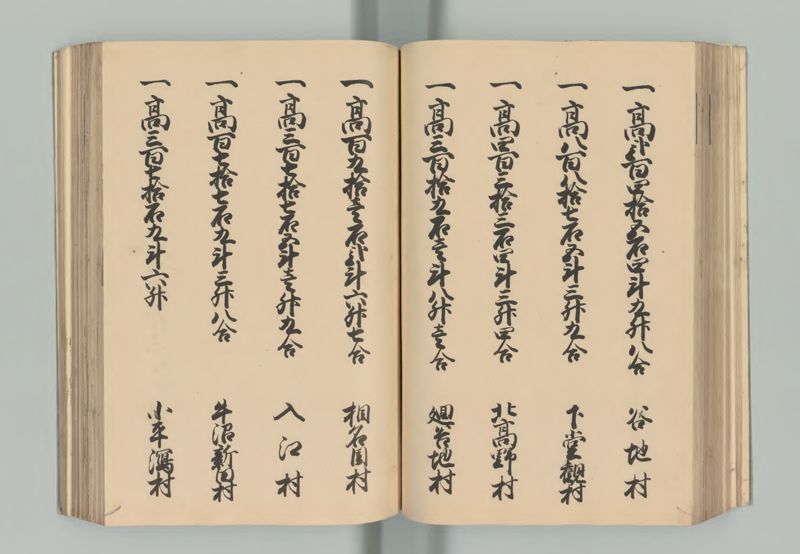 一高弐百四拾五石四斗九升八合 谷地村
一高八百八拾七石五斗三升九合 下堂観村
一高四百三拾三石四斗三升四合 北高野村
一高三百拾九石壱斗八升壱合 廻谷地村
一高百九拾壱石弐斗六升七合 相名田村
一高三百七拾七石五斗壱升九合 入江村
一高百七拾七石九斗三升八合 牛沼新田村
一高三百七拾石九斗六升 小平潟村